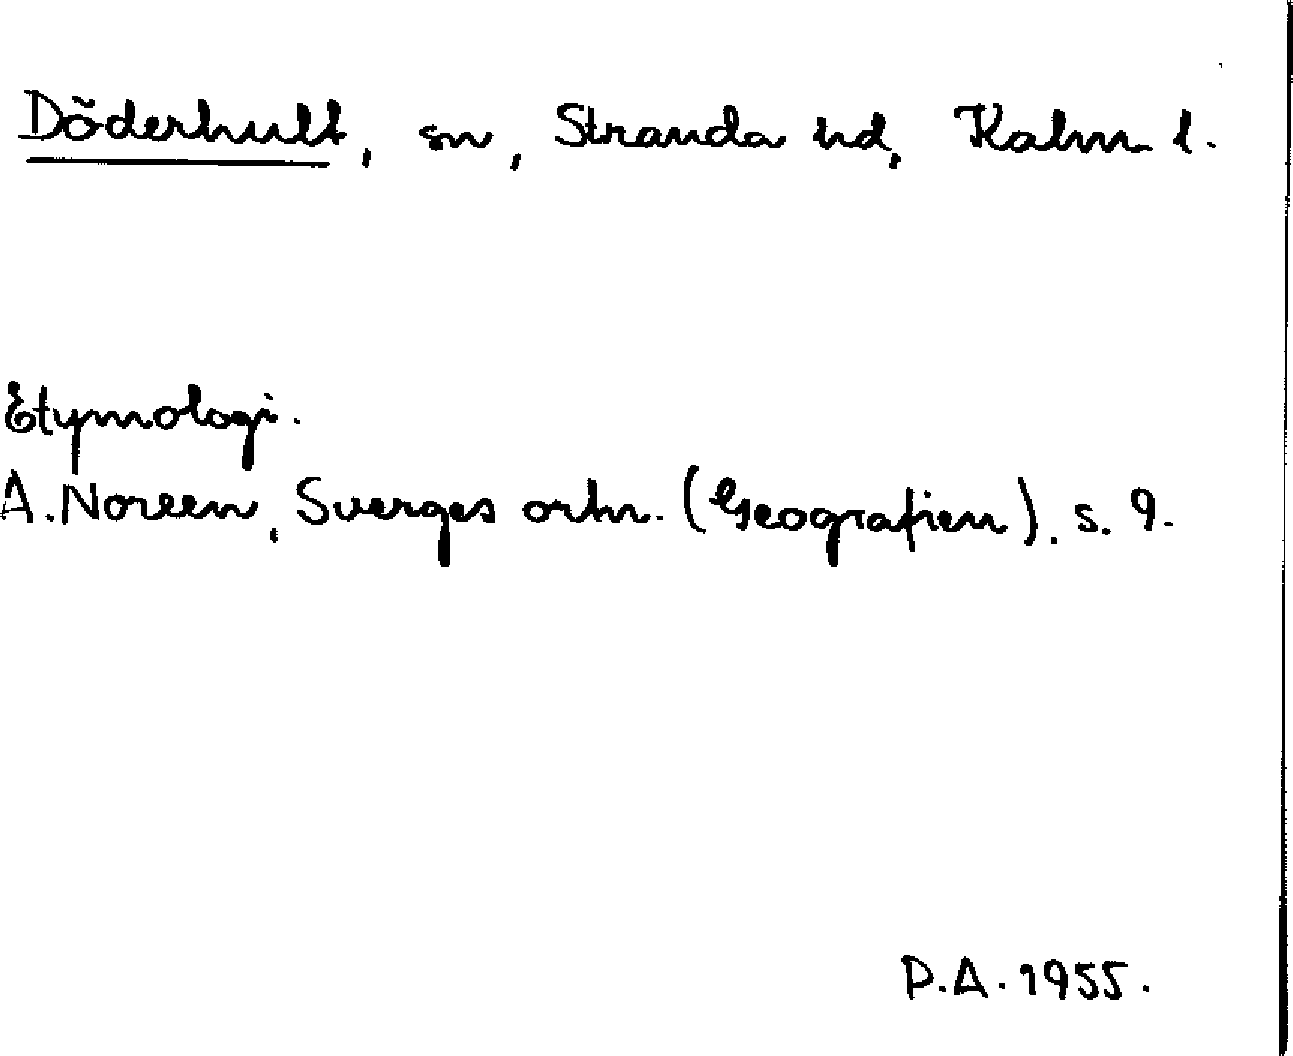 Döderhult, sn, Stranda hd, Kalm. l.
Etymologi.
A. Noreen, Sverges ortn. (Geografien), s. 9.
P.A. 1955.